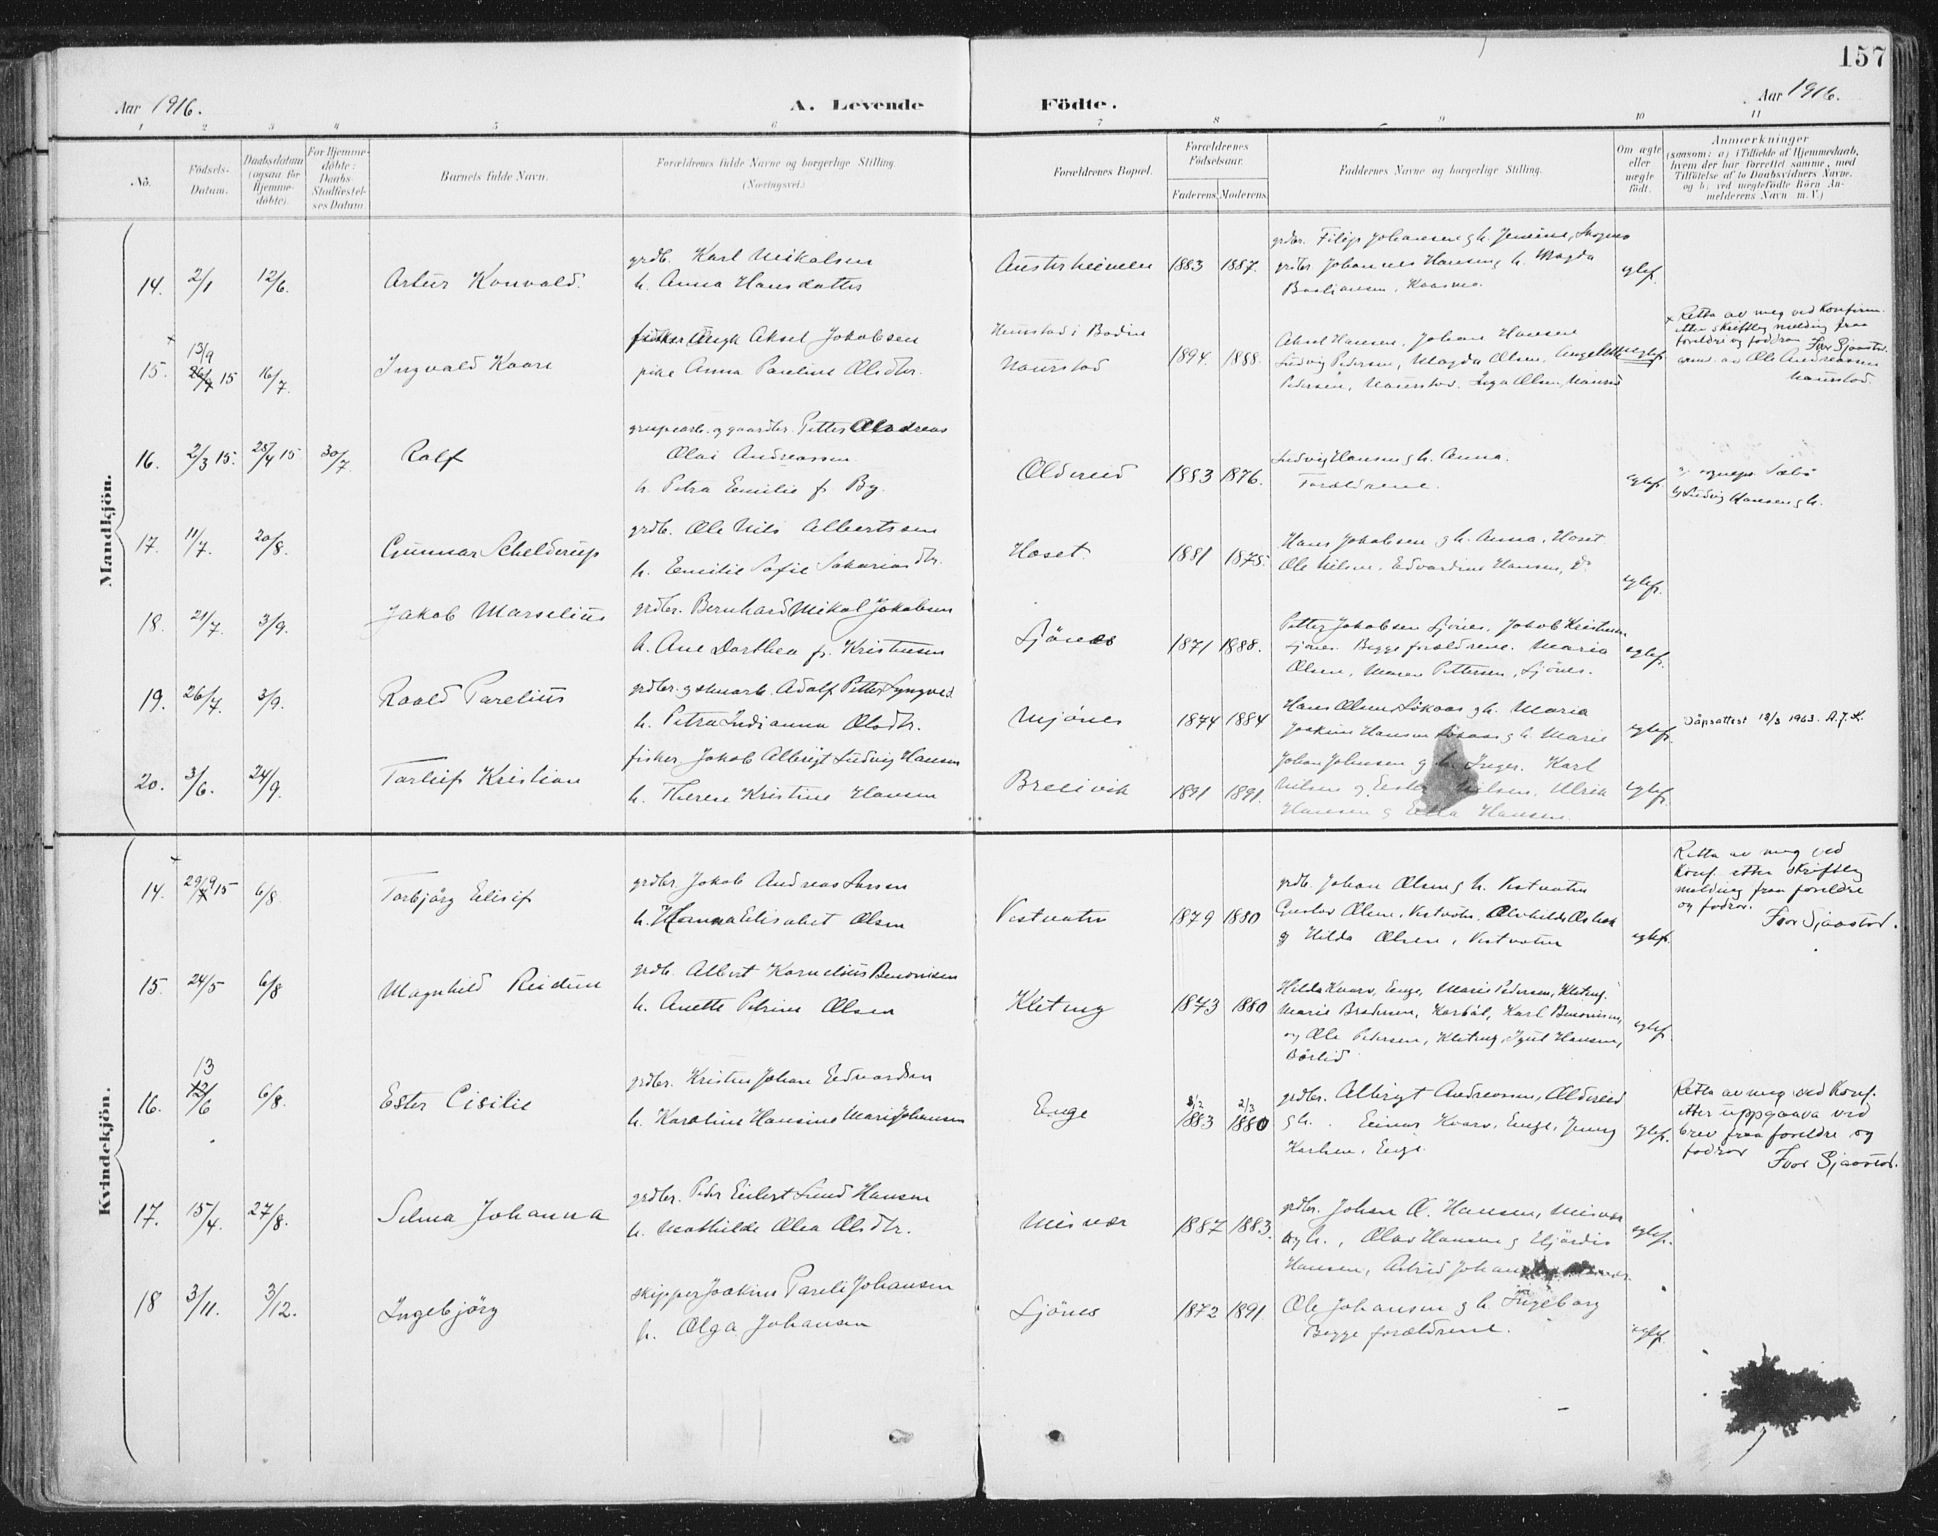 157
Aar 1916.
A. Levende
Födte.
Aar 1916.
1 2 3 4 5 6 7 8 9 10 11
No.
Födsels-
Datum.
Daabsdatum
(ogsaa for
Hjemme-
döbte).
For Hjemme-
döbte:
Daabs-
Stadfæstel-
ses Datum.
Barnets fulde Navn.
Forældrenes fulde Navne og borgerlige Stilling.
(Næringsvei.)
Forældrenes Bopæl.
Forældrenes
Födselsaar.
Faderens. Moderens.
Faddernes Navne og borgerlige Stilling.
Om ægte
eller
uægte
födt.
Anmærkninger
(saasom: a) i Tilfælde af Hjemmedaab,
hvem der har forrettet samme, med
Tilföielse af to Daabsvidners Navne.
og b) ved uegtefödte Börn An-
melderens Navn m. V.)
Mandkjön.
14. 2/1 12/6. Artur Konvald.
grdb. Karl Mikalsen
h. Anna Hansdatter
1883 1887.
grdbr. Filip Johansen g h. Jensine,
grdbr Johannes Hansen g h. Magda
Bastiansen,
egtef.
15. 13/9 15 16/7. Ingvald Kaare
fisker Aksel Jakobsen
pike Anna Pauline Olsdtr.
Naurstad
1894. 1888.
Aksel Hansen, Johan Hansen
Ludvig Pedersen, Magda Olsen,
Pedersen, Naurstad. Inga Olsen,
uegtef
Retta av meg ved Konfirm.
etter skriftleg melding fraa
foreldre og fadrar Ivar Sjaastad.
anm. av Ole Andreassen
Naurstad.
16. 2/3 15. 28/4 15 30/7. Ralf
Olai Andreassen
h. Petra Emilie f. By.
Oldereid
1883 1876.
Ludvig Hansen g h. Anna.
Forældrene.
egtef.
Ludvig Hansen g h.
17. 11/7. 20/8. Gunnar Schelderup
grdb. Ole Nils Albertsen
h. Emilie Sofie Sakariasdtr.
Hoset.
1881 1875.
Hans Jakobsen g h. Anna, Hoset
Ole Nilsen, Edvardine Hansen, do.
egtef.
18. 21/7. 3/9. Jakob Marselius
grdbr. Bernhard Mikal Jakobsen
h. Ane Dorthea f. Kristensen
Ljönes
1871 1888.
Petter Jakobsen Ljönes. Jakob Kristensen
Ljönes. Begge forældrene. Maria
Olsen, Maren Pettersen, Ljönes.
egtef.
19. 26/7. 3/9. Roald Parelius
grdbr. g stenarb. Adolf Petter Lyngved.
h. Petra Indianna Olsdtr.
Mjönes
1874 1884
Hans Olsen Løkaas g h. Maria
Joakim Hansen Løkaas g h. Marie
egtef.
Dåpsattest 12/3 1963. A.J.K.
20. 3/6. 24/9. Torleif Kristian
fisker Jakob Albrigt Ludvig Hansen
h. Therese Kristine Hansen
Breivik
1891 1891.
Johan Johnsen g h. Inger. Karl
Nilsen og Ester Nilsen. Ulrik
Hansen g Ella Hansen.
egtef.
Kvindekjön.
14. 29/9 15 6/8. Torbjörg Elisif
grdbr. Jakob Andreas Larsen
h. Hanna Elisabet Olsen
Vestvatn
1879 1880
grdb. Johan Olsen g h. Vestvatn
Gustav Olsen, Vestvatn.
g Hilda Olsen, Vestvatn
egtef.
Retta av meg ved
Konf. etter skriftleg
melding fraa foreldre
og fadrar.
Ivar Sjaastad.
15. 24/5 6/8 Magnhild Reidun
grdb. Albert Kornelius Benonisen
h. Anette Petrine Olsen
Kletning
1873 1880
Hilda Kvarv, Enge, Marie Pedersen, Kletng.
Marie Bredesen, Karbøl, Karl Benonisen,
og Ole Petersen, Kletng, Hansen,
Børlid
egtef.
16. 13 12/6 6/8. Ester Cisilie
grdbr. Kristen Johan Edvardsen
h. Karoline Hansine Marie Johansen
Enge
8/2 1883 2/3 1880
grdbr. Albrigt Andreassen, Oldereid
g h. Einar Kvarv, Enge, Jenny
Karlsen, Enge.
egtef.
Retta av meg ved Konf.
etter uppgaava ved
brev fraa foreldre og
fadrar Ivar Sjaastad.
17. 15/4. 27/8. Selma Johanna
grdbr. Peder Eilert Lund Hansen
h. Mathilde Olea Olsdtr.
Misvær
1887 1883.
grdbr. Johan O. Hansen, Misvær
og h., Olav Hansen g Hjördis
Hansen, Astrid
egtef.
18 3/11. 3/12. Ingebjörg
skipper Joakim Pareli Johansen
h. Olga Johansen
Ljönes
1872 1891.
Ole Johansen g h. Ingeborg
Begge forældrene.
egtef.